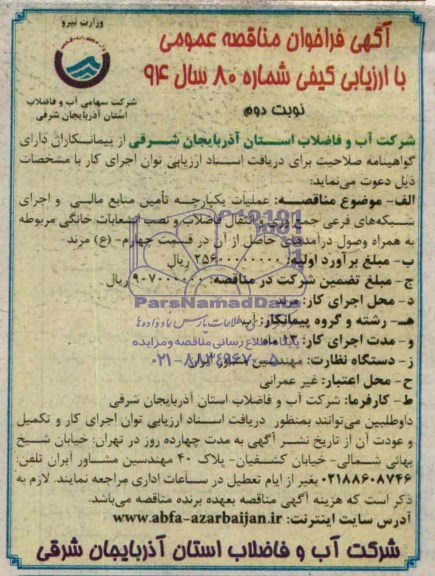 وزارت نیرو
شرکت سهامی آب و فاضلاب
استان آذربایجان شرقی
آگهی فراخوان مناقصه عمومی
با ارزیابی کیفی شماره ۸۰ سال ۹۴
نوبت دوم
شرکت آب و فاضلاب استان آذربایجان شرقی از پیمانکاران دارای
گواهینامه صلاحیت برای دریافت اسناد ارزیابی توان اجرای کار با مشخصات
ذیل دعوت می‌نماید:
الف- موضوع مناقصه: عملیات یکپارچه تأمین منابع مالی و اجرای
شبکه‌های فرعی جمع‌آوری و انتقال فاضلاب و نصب انشعابات خانگی مربوطه
به همراه وصول درآمدهای حاصل از آن در قسمت چهارم- (ع) مرند
ب- مبلغ برآورد اولیه: ریال
ج- مبلغ تضمین شرکت در مناقصه: ریال
د- محل اجرای کار: مرند
هـ- رشته و گروه پیمانکار: آب
و- مدت اجرای کار: ۱۲ ماه
ز- دستگاه نظارت: مهندسین مشاور ایران
ح- محل اعتبار: غیر عمرانی
ط- کارفرما: شرکت آب و فاضلاب استان آذربایجان شرقی
داوطلبین می‌توانند بمنظور دریافت اسناد ارزیابی توان اجرای کار و تکمیل
و عودت آن از تاریخ نشر آگهی به مدت چهارده روز در تهران: خیابان شیخ
بهائی شمالی- خیابان کشفیان- پلاک ۴۰ مهندسین مشاور ایران تلفن:
۰۲۱۸۸۶۰۸۷۴۶ بغیر از ایام تعطیل در ساعات اداری مراجعه نمایند. لازم به
ذکر است که هزینه آگهی مناقصه بعهده برنده مناقصه می‌باشد.
آدرس سایت اینترنت: www.abfa-azarbaijan.ir
شرکت آب و فاضلاب استان آذربایجان شرقی
ParsNamadData
پایگاه اطلاع رسانی مناقصه و مزایده
۰۲۱-۸۸۳۴۹۶۷۰-۵